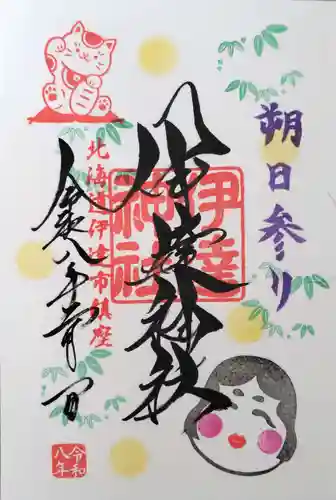 朔日参り
伊達神社
伊達神社
北海道伊達市鎮座
令和八年
令和
八年